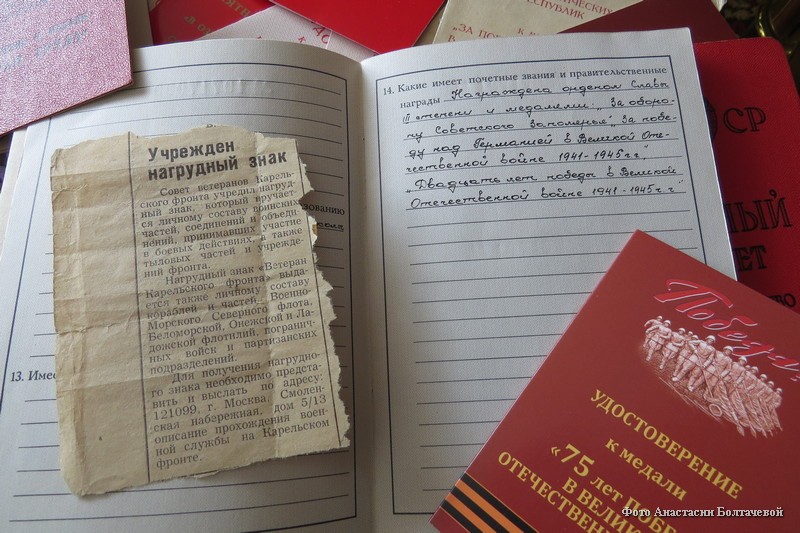 Учрежден
нагрудный знак
Совет ветеранов Карель-
ского фронта учредил нагруд-
ный знак, который вручает-
ся личному составу воинских
частей, соединений и объеди-
нений, принимавших участие
в боевых действиях, а также
тыловых частей и учрежде-
ний фронта.
Нагрудный знак «Ветеран
Карельского фронта» выда-
ется также личному составу
кораблей и частей Военно-
Морского Северного флота,
Беломорской, Онежской и Ла-
дожской флотилий, погранич-
ных войск и партизанских
подразделений.
Для получения нагрудно-
го знака необходимо предста-
вить и выслать по адресу:
121099, г. Москва, Смолен-
ская набережная, дом 5/13
описание прохождения воен-
ной службы на Карельском
фронте.
13. Име
14. Какие имеет почетные звания и правительственные
награды Награждена орденом Славы
III степени и медалями: „За оборо-
ну Советского Заполярья" „За побе-
ду над Германией в Великой Оте-
чественной войне 1941-1945 г г."
„Двадцать лет победы в Великой
Отечественной войне 1941-1945 г г."
Победа!
УДОСТОВЕРЕНИЕ
к медали
«75 лет ПОБЕ
В ВЕЛИК
ОТЕЧЕСТВЕНН
Фото Анастасии Болтачевой